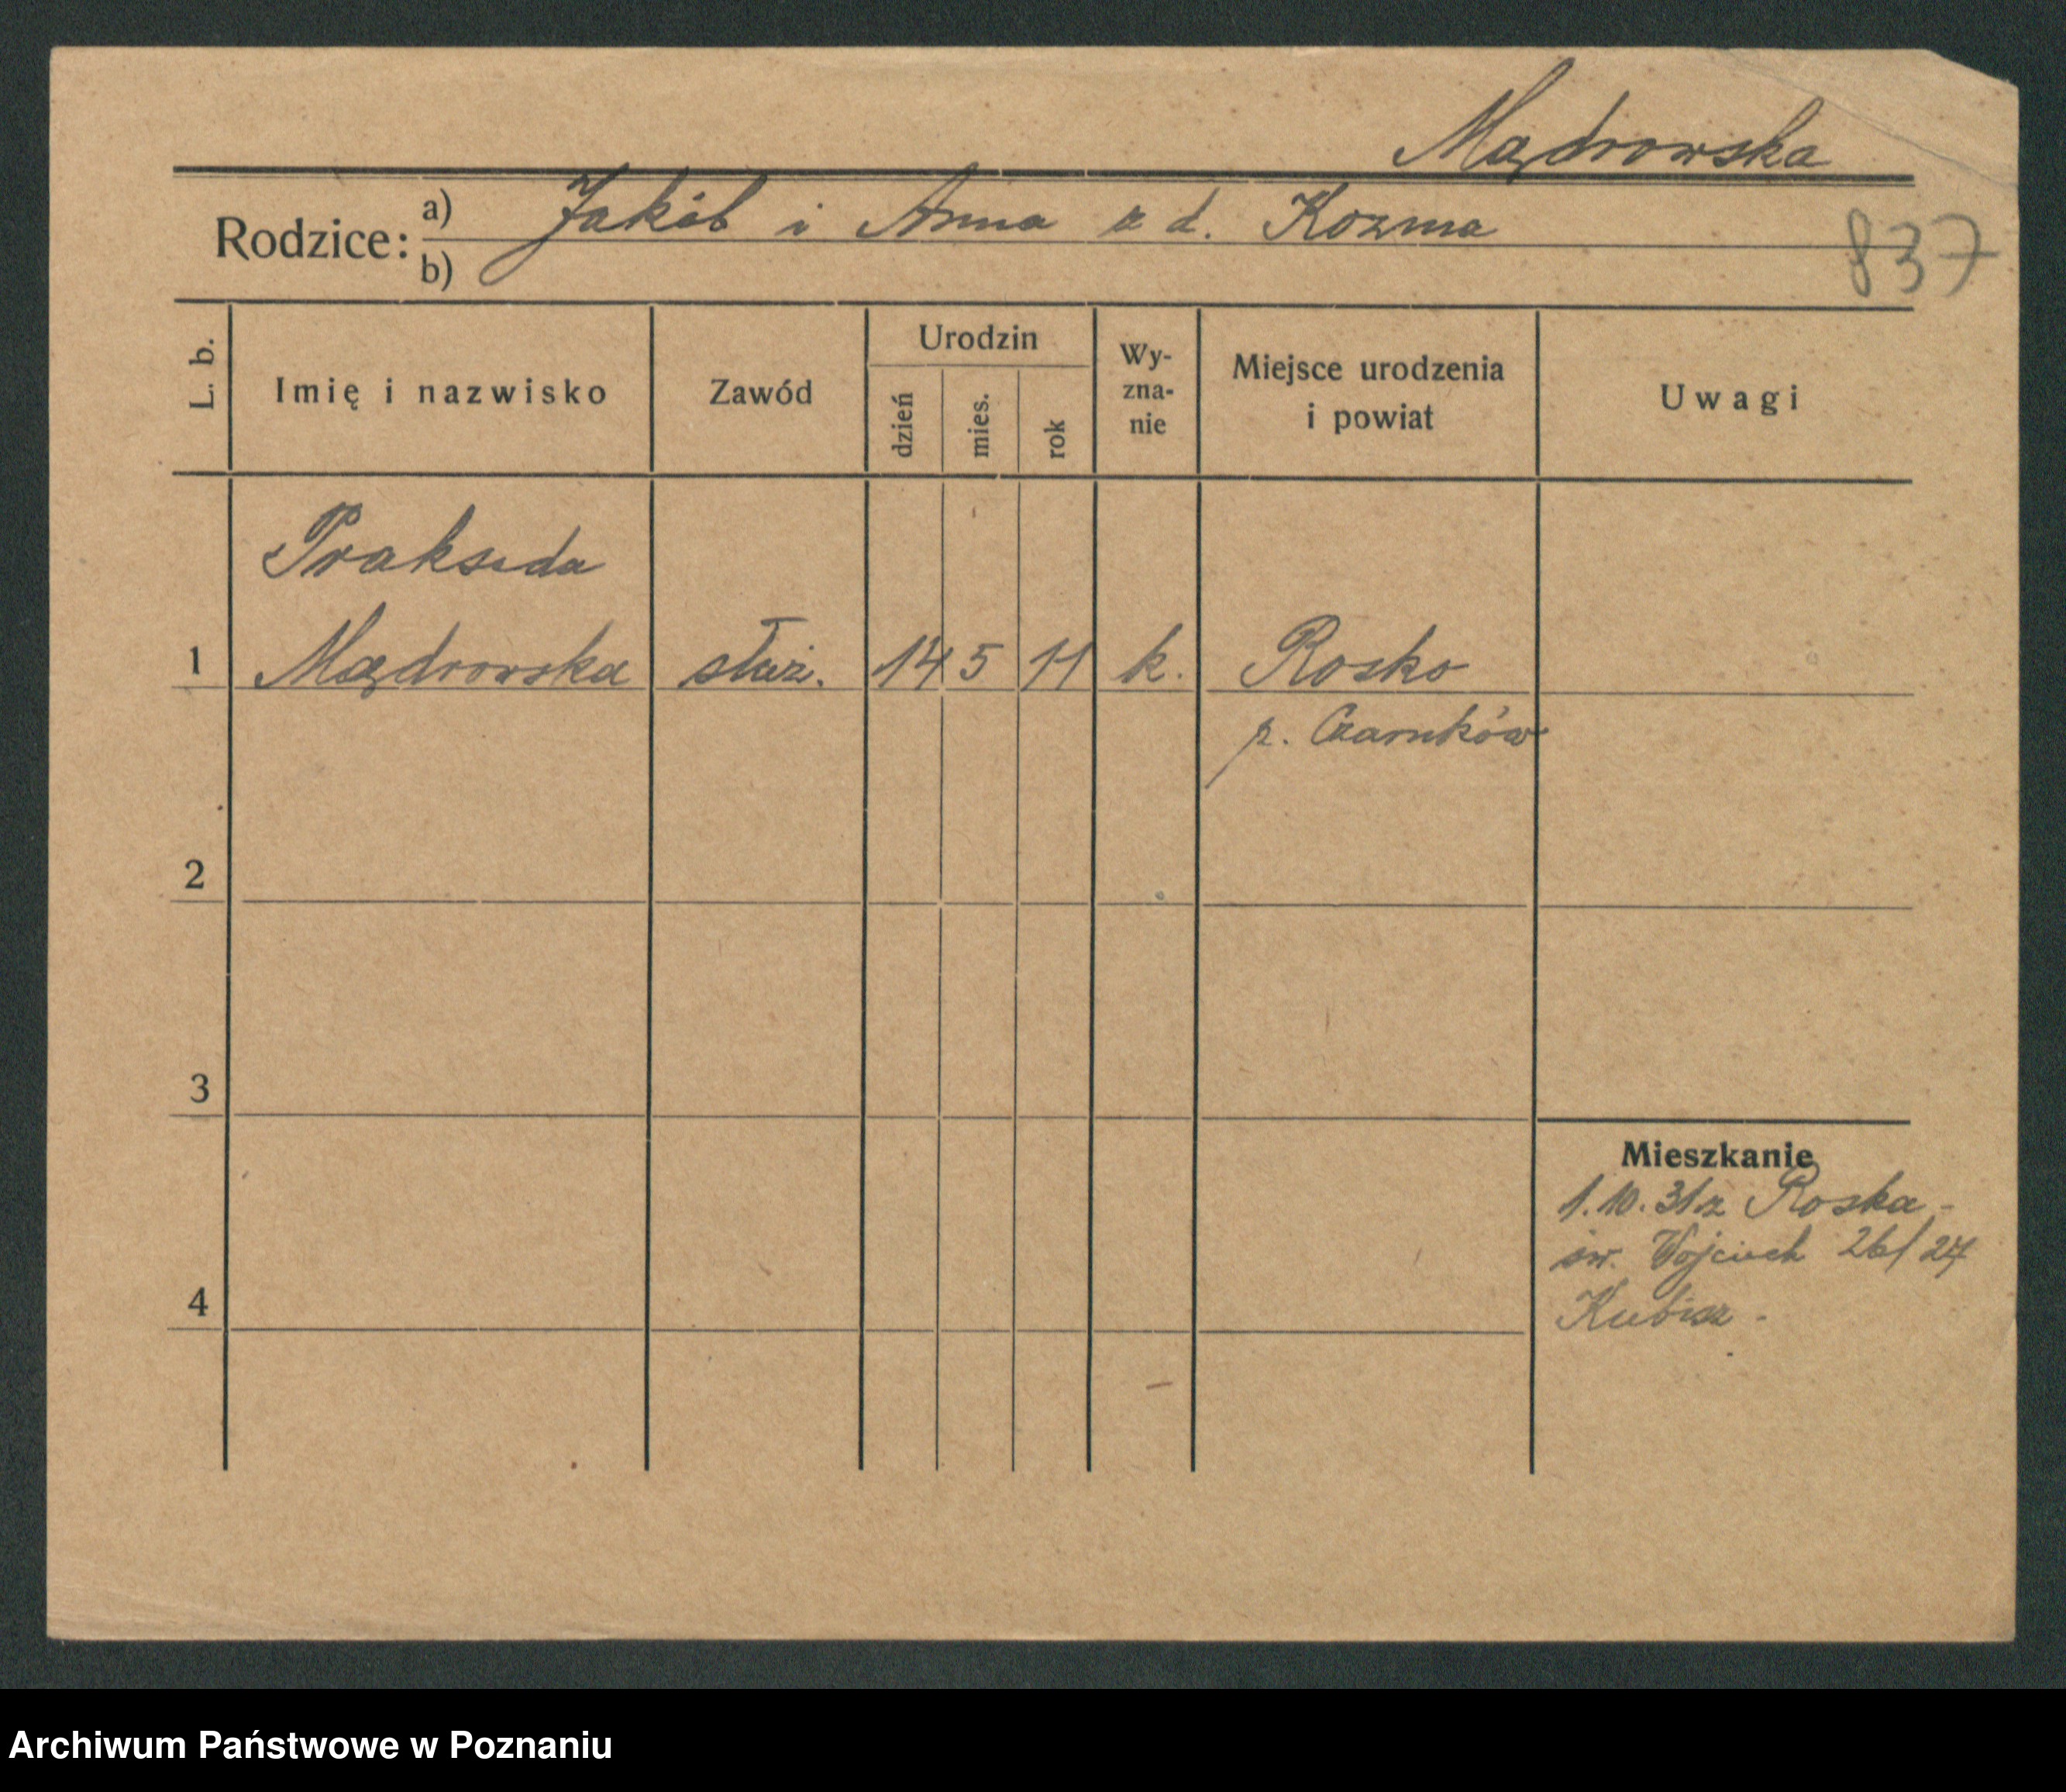 Mądrowska
Rodzice: a) Jakób i Anna z d. Kozma
b)
837
L. b.
Imię i nazwisko
Zawód
Urodzin
dzień
mies.
rok
Wy-
zna-
nie
Miejsce urodzenia
i powiat
Uwagi
Prakseda
1 Mądrowska służ. 14 5 11 k. Rosko
p. Czarnków
2
3
Mieszkanie
1.10.31 z Roska -
św. Wojciech 26/27
4
Kubisz -
Archiwum Państwowe w Poznaniu